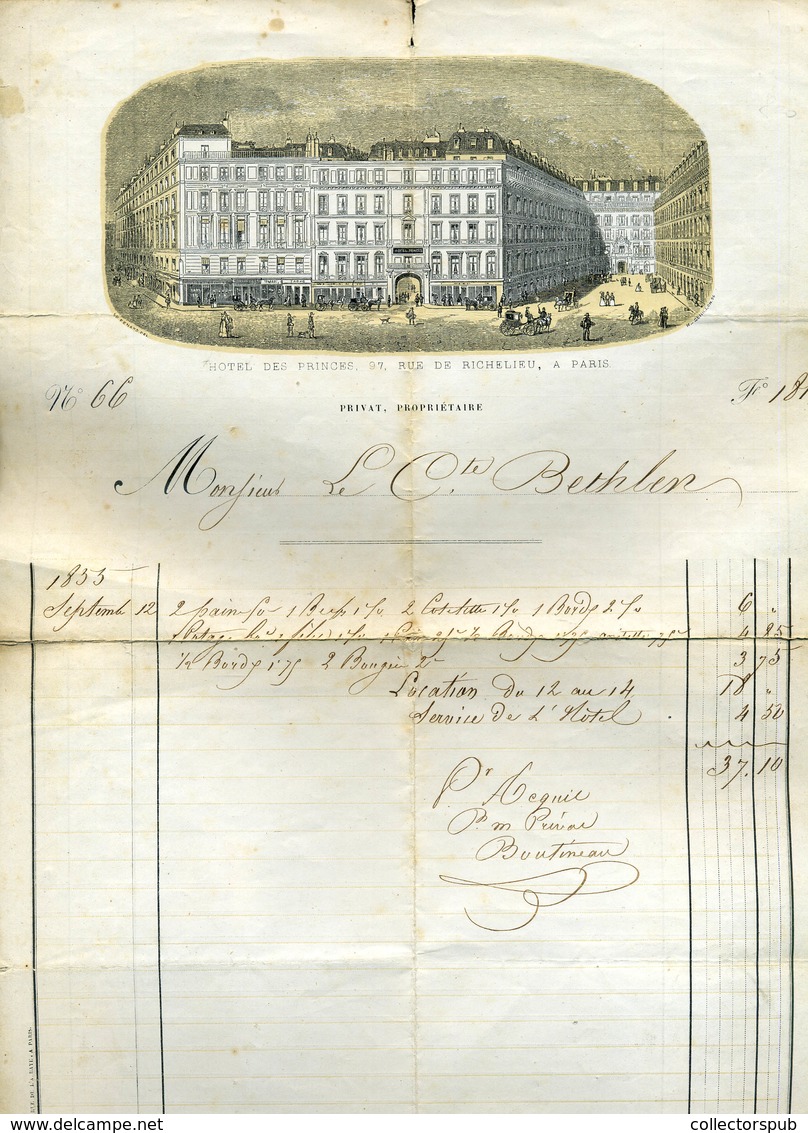 HOTEL DES PRINCES, 97, RUE DE RICHELIEU, A PARIS.
No 66
Fo 181
PRIVAT, PROPRIÉTAIRE
Monsieur Le Cte Bethlen
1855
Septemb 12 2 pain 1 Beef 2 Cotelette 1 Bordx 6 "
1 Potage 1/2 Bordx 4 25
1/2 Bordx 1.75 2 Bougie 2 3 75
Location du 12 au 14 18 "
Service de L'Hôtel 4 50
37.10
Pr Acquit
Pr m Privat
Boutineau
A PARIS.
delcampe.net
collectorspub